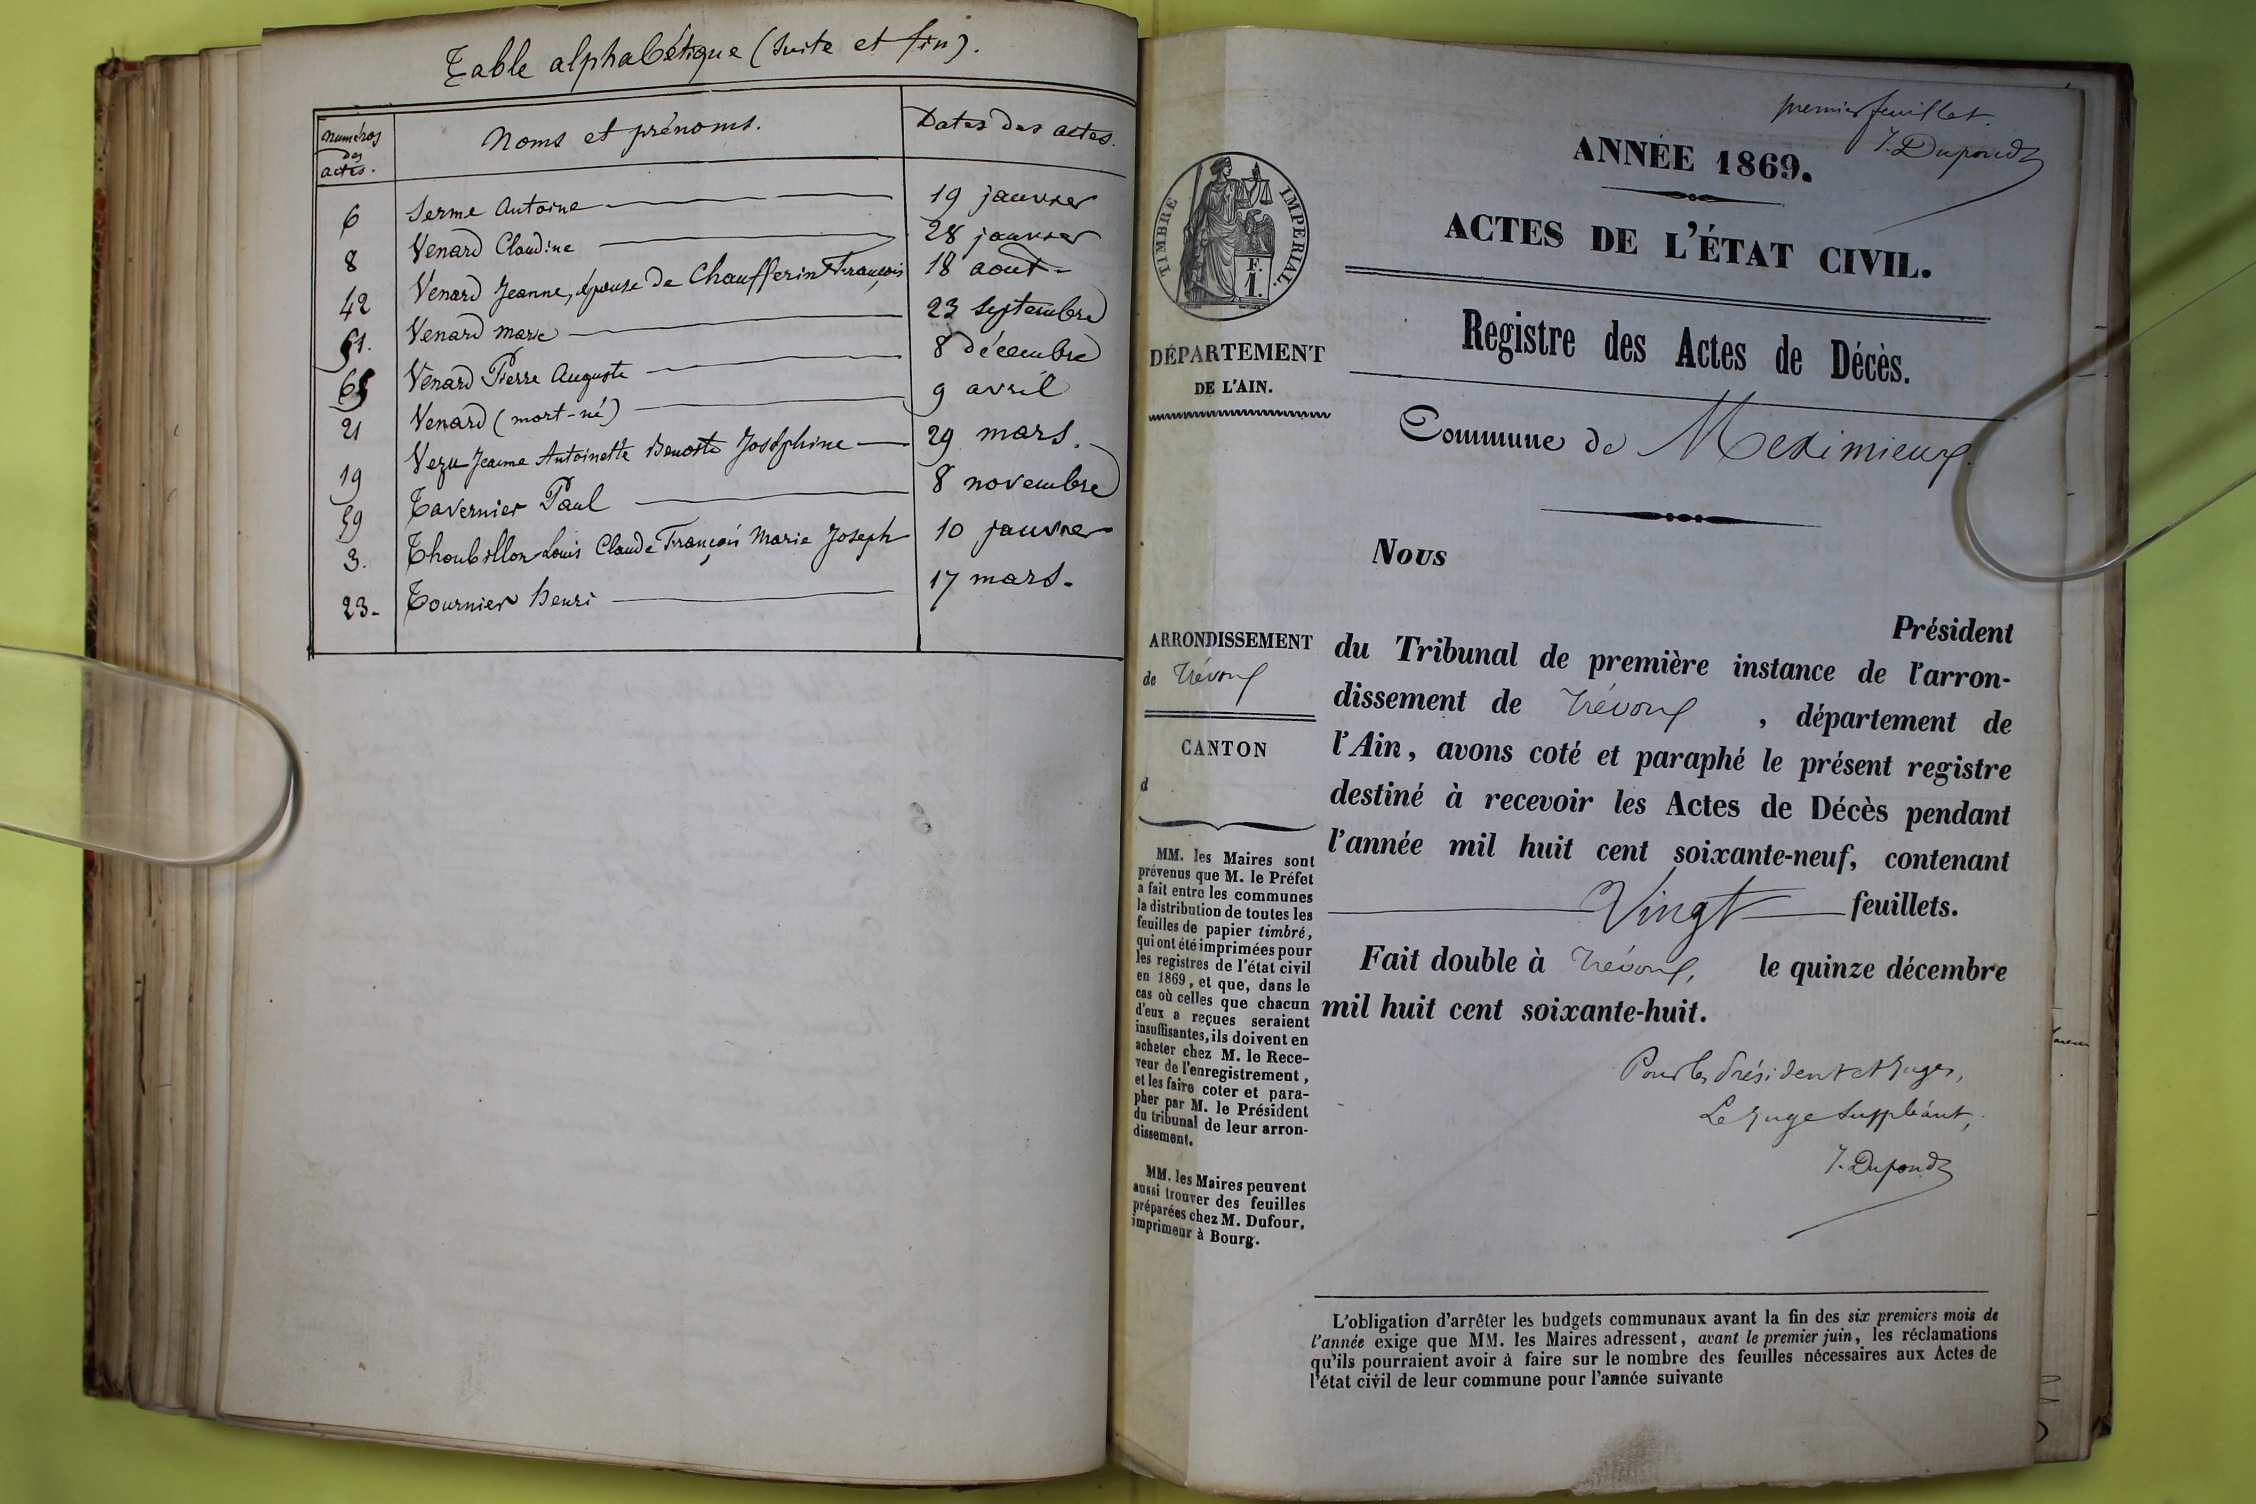 Table alphabétique (suite et fin).
Numéros des actes.
Noms et prénoms.
Dates des actes.
6 Serme Antoine 19 janvier
8 Venard Claudine 28 janvier
42 Venard Jeanne, épouse de Chaufferin François 18 aout
51. Venard Marie 23 septembre
65 Venard Pierre Auguste 8 décembre
21 Venard (mort-né) 9 avril
19 Vezu Jeanne Antoinette Benoîte Joséphine 29 mars.
59 Tavernier Paul 8 novembre
3. Thoubillon Louis Claude François Marie Joseph 10 janvier
23. Tournier henri 17 mars.
premier feuillet.
J. Dupond
ANNÉE 1869.
ACTES DE L'ÉTAT CIVIL.
Registre des Actes de Décès.
Commune de Meximieux.
TIMBRE IMPERIAL.
F.
1.
DÉPARTEMENT
DE L'AIN.
ARRONDISSEMENT
de Trévoux
CANTON
d
MM. les Maires sont
prévenus que M. le Préfet
a fait entre les communes
la distribution de toutes les
feuilles de papier timbré,
qui ont été imprimées pour
les registres de l'état civil
en 1869, et que, dans le
cas où celles que chacun
d'eux a reçues seraient
insuffisantes, ils doivent en
acheter chez M. le Rece-
veur de l'enregistrement,
et les faire coter et para-
pher par M. le Président
du tribunal de leur arron-
dissement.
MM. les Maires peuvent
aussi trouver des feuilles
préparées chez M. Dufour,
imprimeur à Bourg.
Nous
Président
du Tribunal de première instance de l'arron-
dissement de Trévoux, département de
l'Ain, avons coté et paraphé le présent registre
destiné à recevoir les Actes de Décès pendant
l'année mil huit cent soixante-neuf, contenant
Vingt feuillets.
Fait double à Trévoux, le quinze décembre
mil huit cent soixante-huit.
Pour les Président et Juges,
Le Juge Suppléant,
J. Dupond
L'obligation d'arrêter les budgets communaux avant la fin des six premiers mois de
l'année exige que MM. les Maires adressent, avant le premier juin, les réclamations
qu'ils pourraient avoir à faire sur le nombre des feuilles nécessaires aux Actes de
l'état civil de leur commune pour l'année suivante